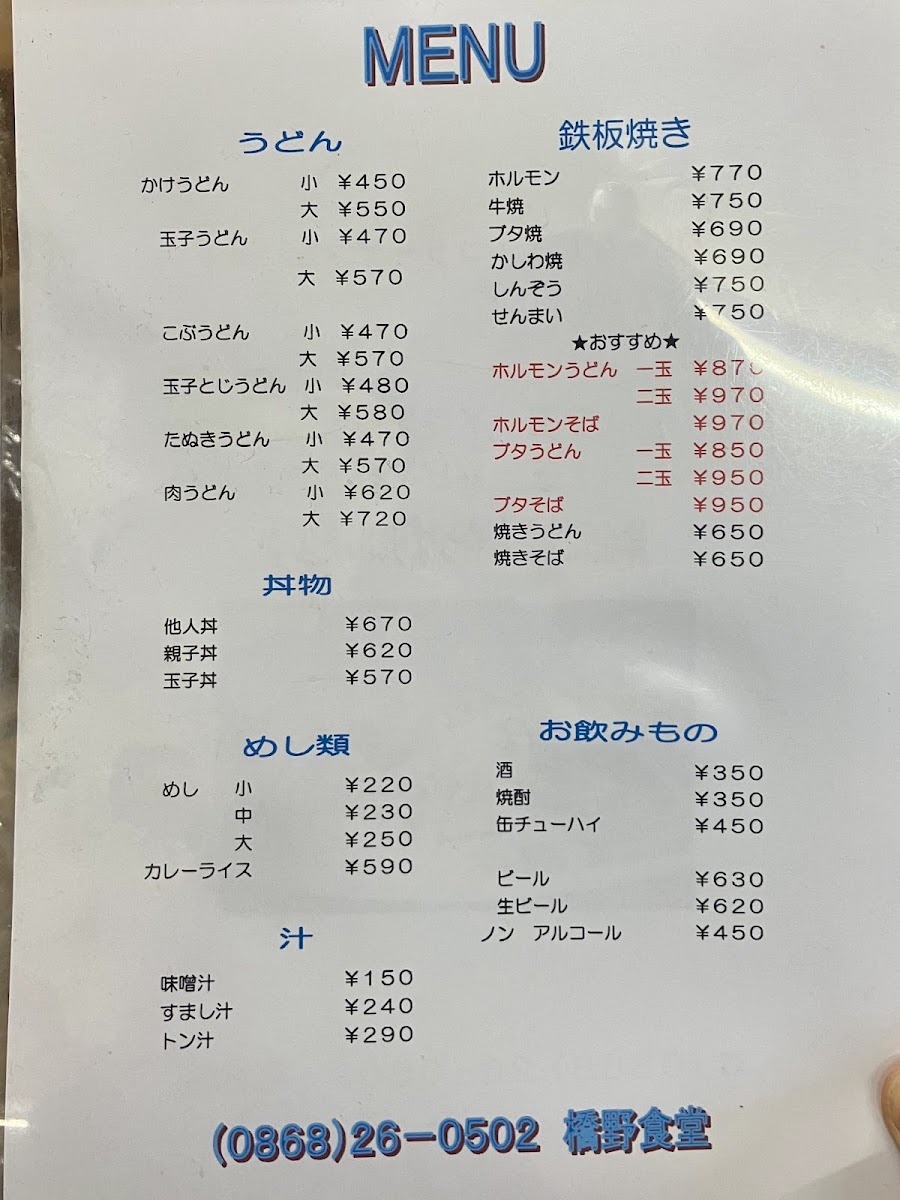 MENU
うどん
かけうどん 小 ￥450
大 ￥550
玉子うどん 小 ￥470
大 ￥570
こぶうどん 小 ￥470
大 ￥570
玉子とじうどん 小 ￥480
大 ￥580
たぬきうどん 小 ￥470
大 ￥570
肉うどん 小 ￥620
大 ￥720
丼物
他人丼 ￥670
親子丼 ￥620
玉子丼 ￥570
めし類
めし 小 ￥220
中 ￥230
大 ￥250
カレーライス ￥590
汁
味噌汁 ￥150
すまし汁 ￥240
トン汁 ￥290
鉄板焼き
ホルモン ￥770
牛焼 ￥750
ブタ焼 ￥690
かしわ焼 ￥690
しんぞう ￥750
せんまい ￥750
★おすすめ★
ホルモンうどん 一玉 ￥870
二玉 ￥970
ホルモンそば ￥970
ブタうどん 一玉 ￥850
二玉 ￥950
ブタそば ￥950
焼きうどん ￥650
焼きそば ￥650
お飲みもの
酒 ￥350
焼酎 ￥350
缶チューハイ ￥450
ビール ￥630
生ビール ￥620
ノン アルコール ￥450
(0868)26-0502 橋野食堂